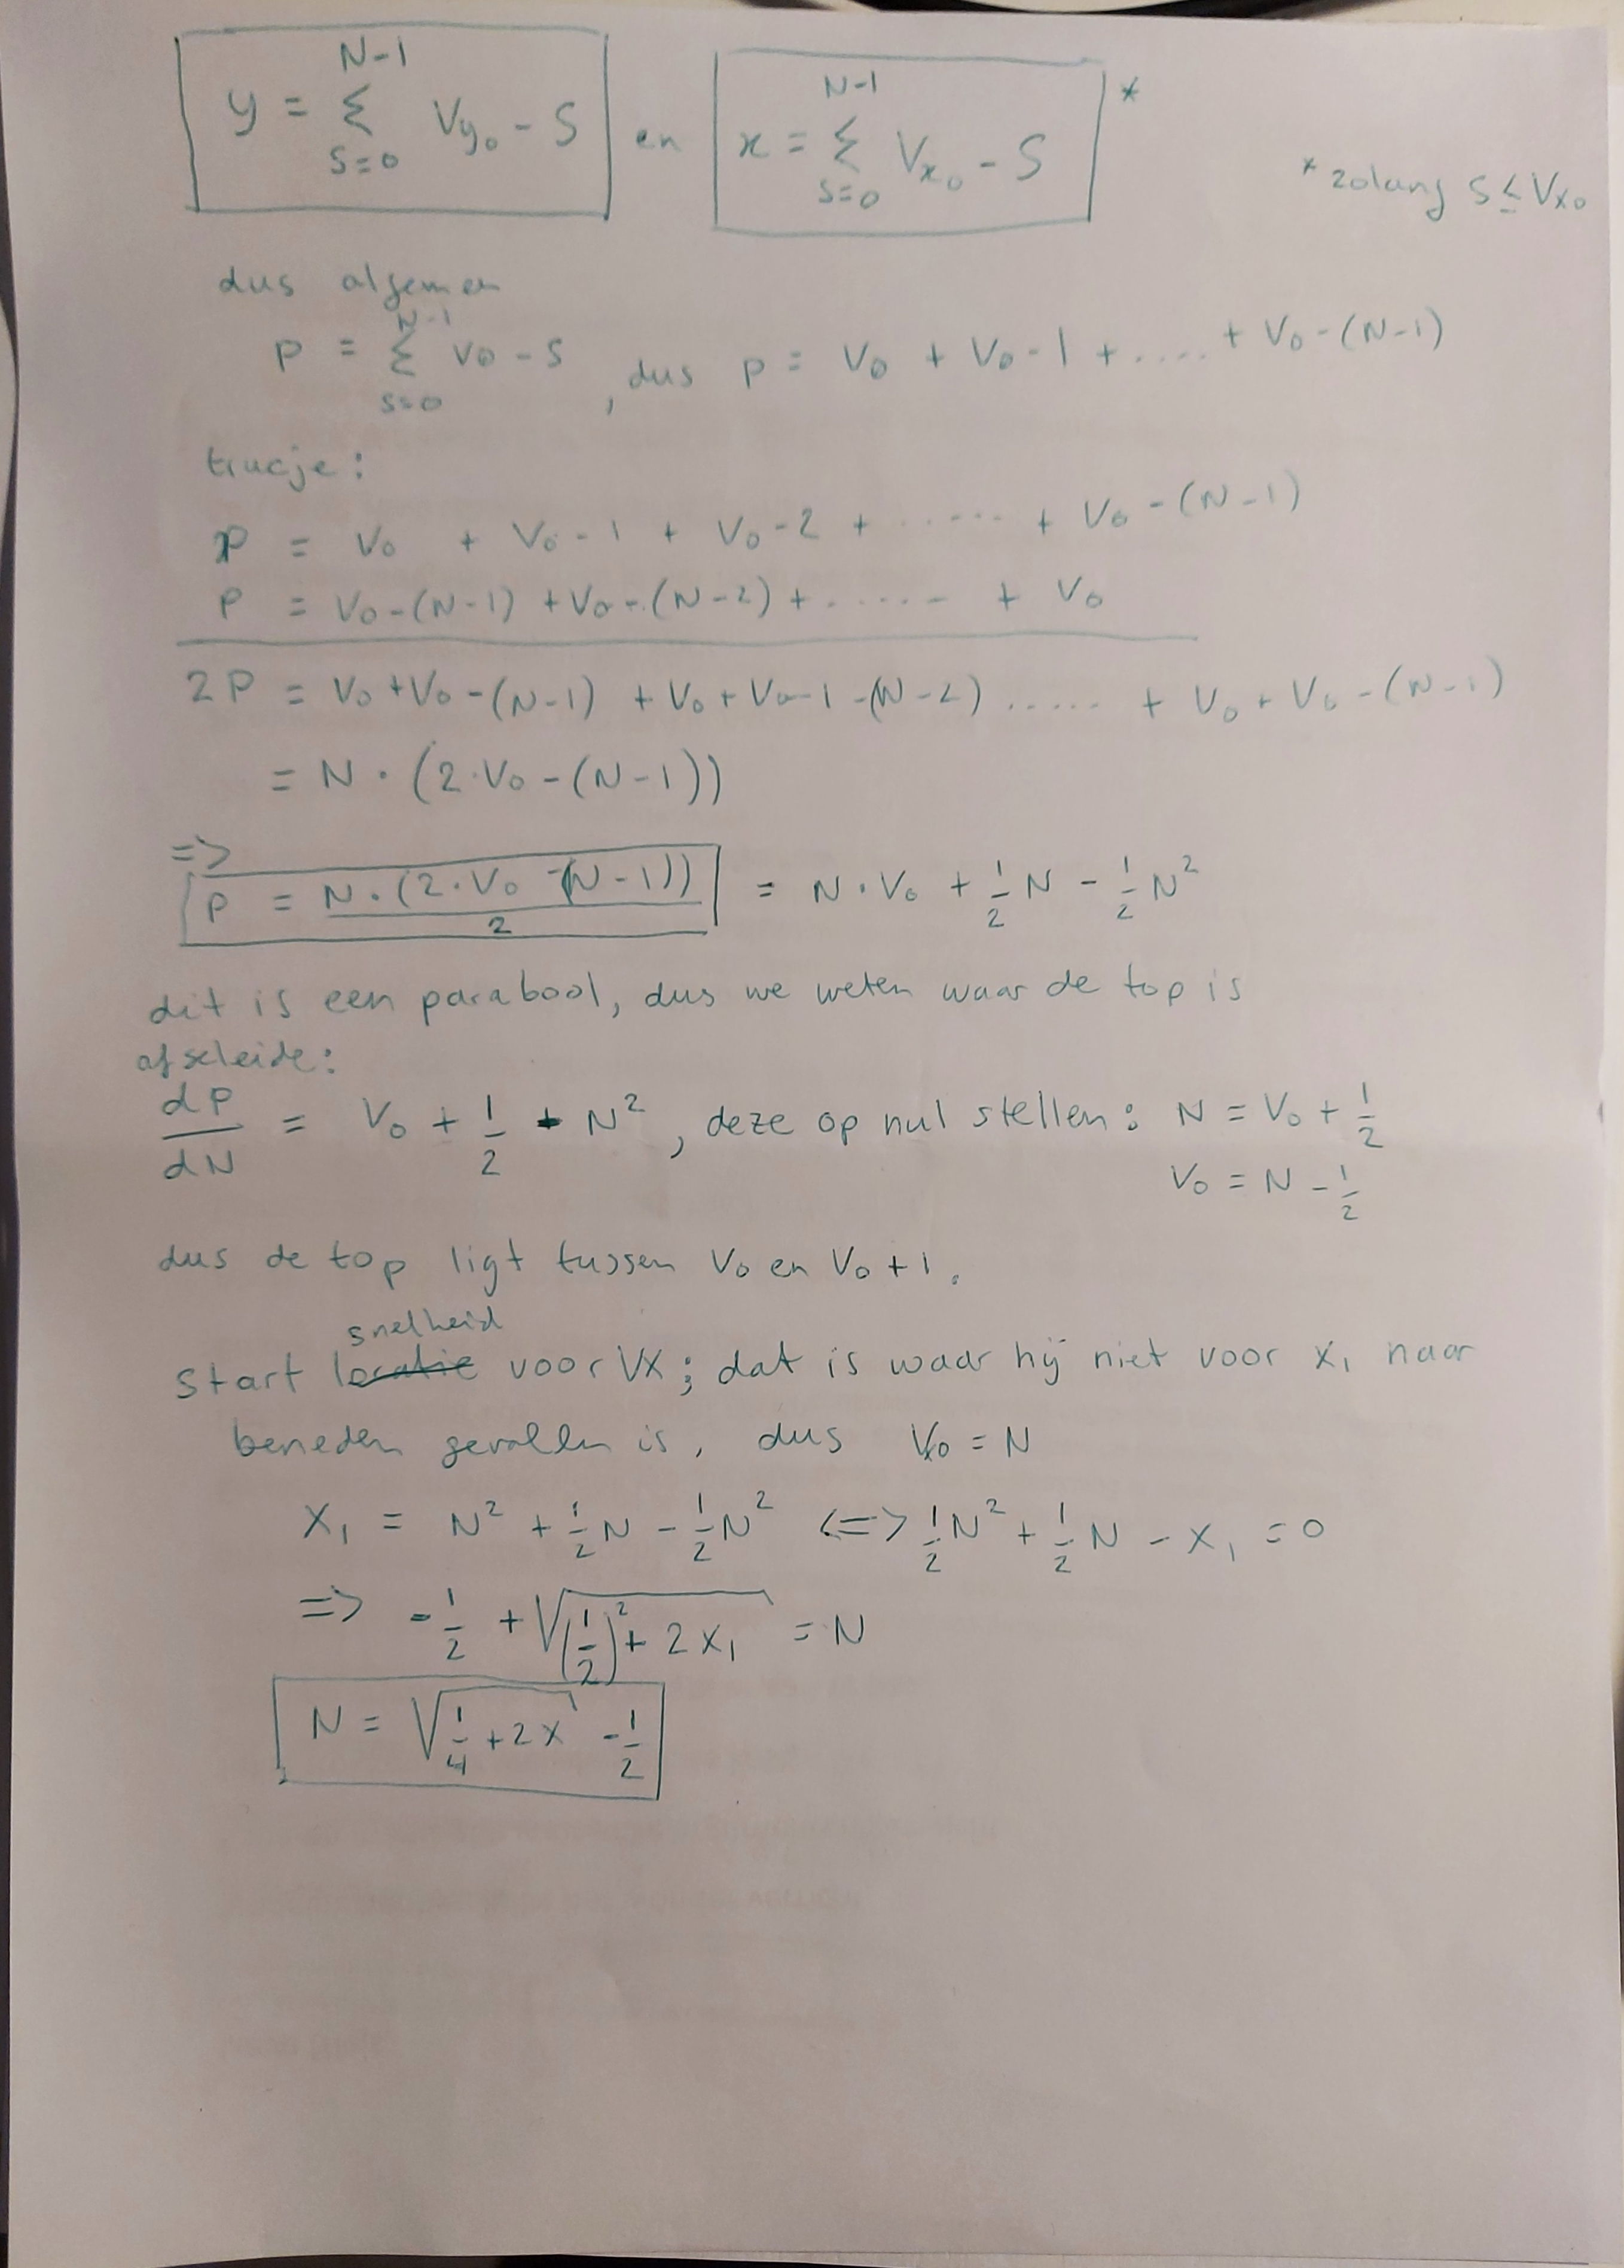 y = Σ_{s=0}^{N-1} Vy₀ - S en x = Σ_{s=0}^{N-1} Vx₀ - S *
* zolang S ≤ Vx₀
dus algemen
p = Σ_{s=0}^{N-1} V₀ - S , dus p = V₀ + V₀-1 + .... + V₀-(N-1)
trucje:
P = V₀ + V₀-1 + V₀-2 + ...... + V₀-(N-1)
P = V₀-(N-1) + V₀-(N-2) + ...... + V₀
2P = V₀+V₀-(N-1) + V₀+V₀-1-(N-2) ..... + V₀+V₀-(N-1)
= N · (2·V₀-(N-1))
=> P = N·(2·V₀-(N-1))/2 = N·V₀ + 1/2 N - 1/2 N²
dit is een parabool, dus we weten waar de top is
afgeleide:
dP/dN = V₀ + 1/2 - N², deze op nul stellen: N = V₀ + 1/2
V₀ = N - 1/2
dus de top ligt tussen V₀ en V₀+1.
snelheid
start locatie voor VX; dat is waar hij niet voor x₁ naar
beneden gevallen is, dus Vx₀ = N
X₁ = N² + 1/2 N - 1/2 N² <=> 1/2 N² + 1/2 N - X₁ = 0
=> -1/2 + √((1/2)² + 2X₁) = N
N = √(1/4 + 2X) - 1/2